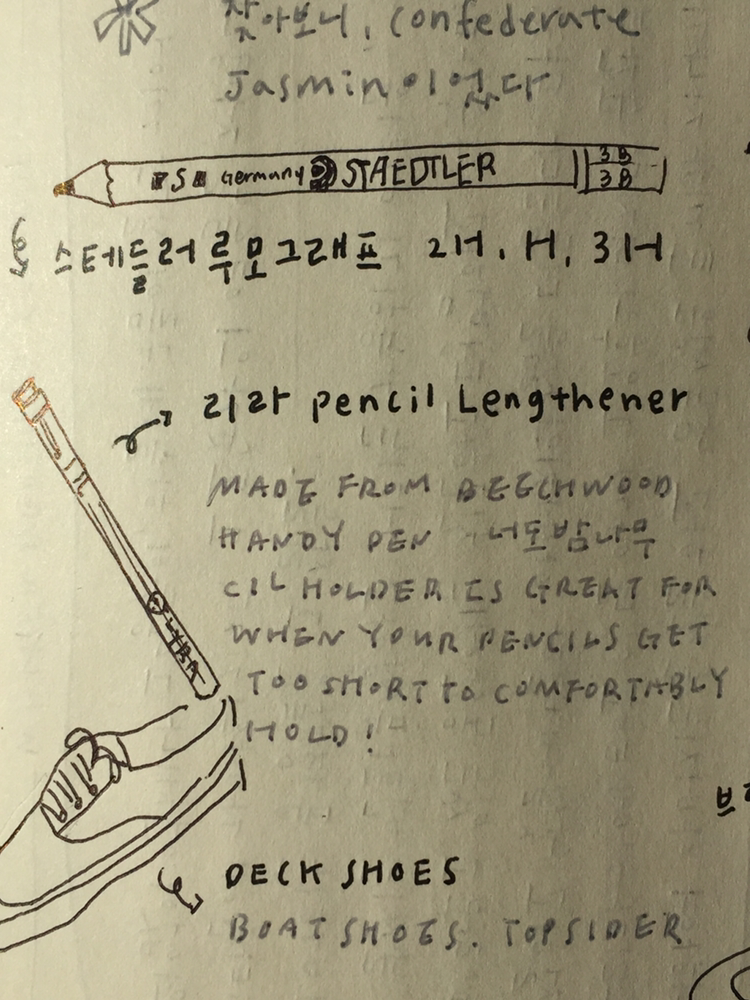 찾아보니, Confederate
Jasmin이었다
S Germany STAEDTLER 3B
3B
스테들러 루모그래프 2H, H, 3H
리라 pencil Lengthener
MADE FROM BEECHWOOD
HANDY PEN 너도밤나무
CIL HOLDER IS GREAT FOR
WHEN YOUR PENCILS GET
TOO SHORT to COMFORTABLY
HOLD!
LYRA
DECK SHOES
BOAT SHOES. TOPSIDER